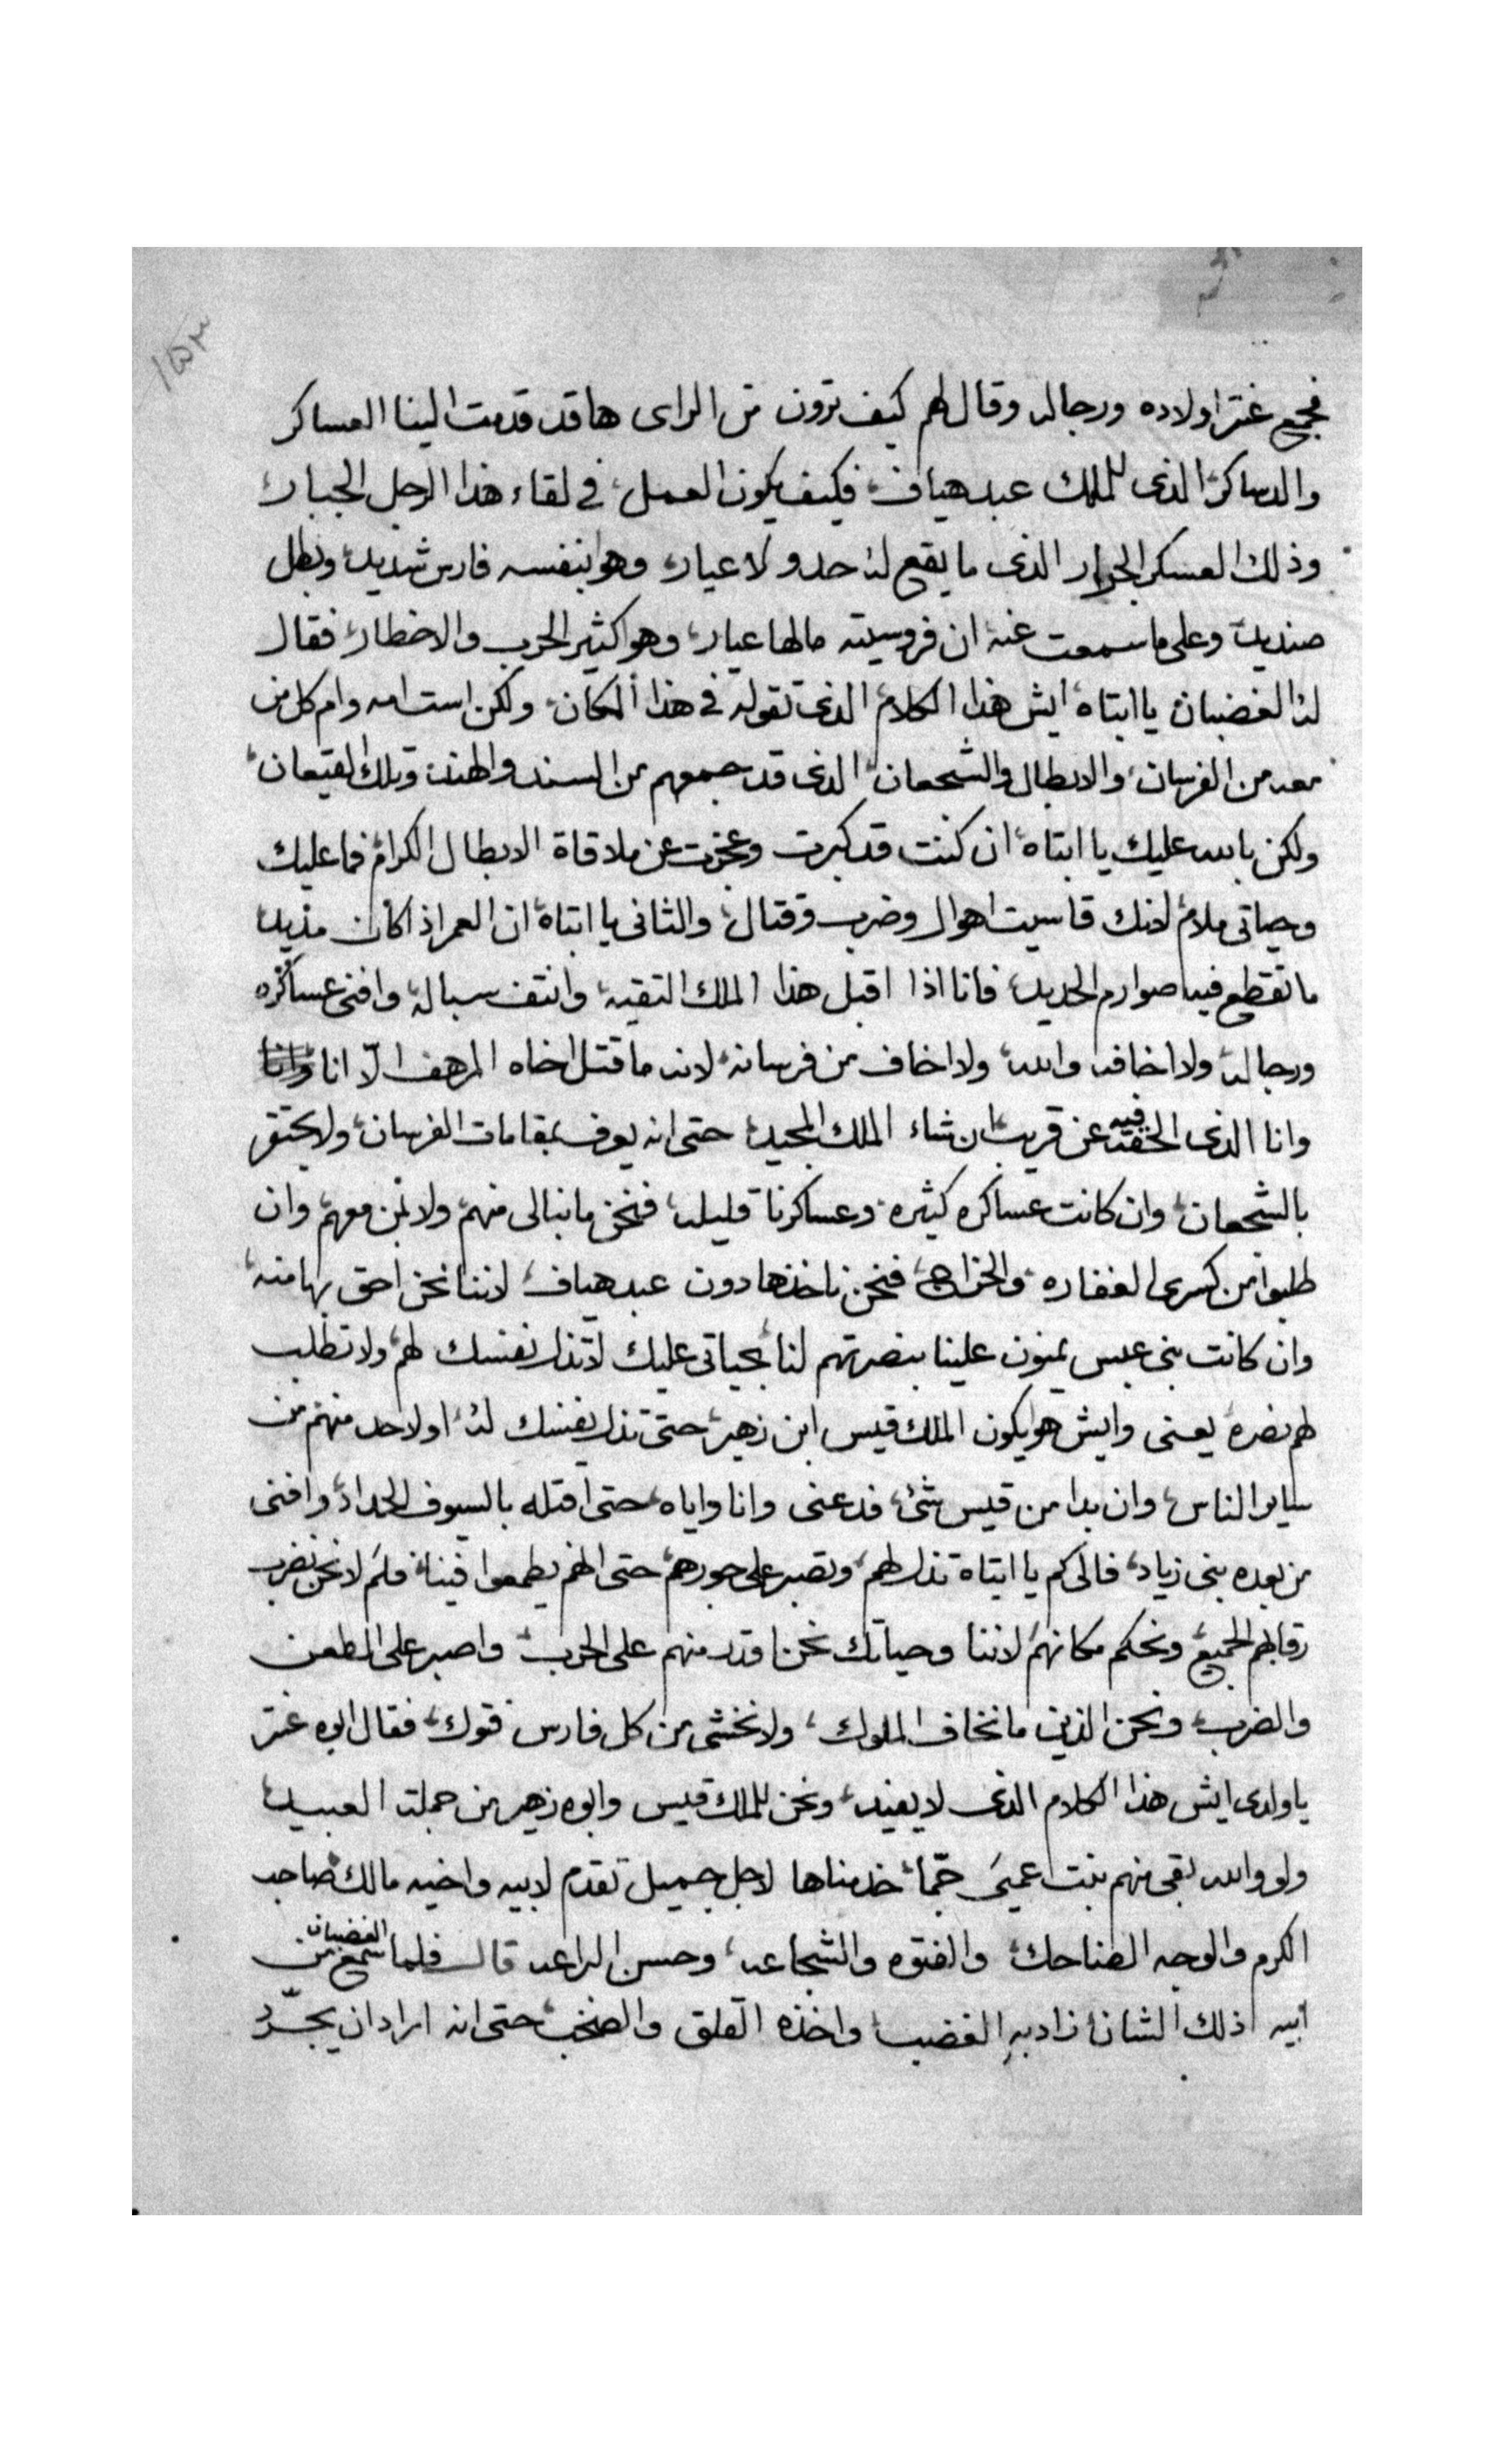 ١٥٣
فجمع عنتر اولاده ورجاله وقال لهم كيف ترون من الراى هاقد قدمت الينا العساكر
والدساكر الذى للملك عبد هياف فكيف يكون العمل فى لقاء هذا الرجل الجبار
وذلك العسكر الجرار الذى ما يقع له حد ولا عيار وهو بنفسه فارس شديد وبطل
صنديد وعلى ما سمعت عنه ان فروسيته مالها عيار وهو كثير الحرب والاخطار فقال
له الغضبان يا ابتاه ايش هذا الكلام الذى تقوله فى هذا المكان ولكن است امه وام كل من
معه من الفرسان والابطال والشجعان الذى قد جمعهم من السند والهند وتلك القيعان
ولكن بالله عليك يا ابتاه ان كنت قد كبرت وعجزت عن ملاقاة الابطال الكرام فما عليك
وحياتى ملام لانك قاسيت اهوال وضرب وقتال والثانى يا ابتاه ان العمر اذا كان مديد
ما تقطع فيه صوارم الحديد فانا اذا اقبل هذا الملك التقيه وانتف سباله وافنى عساكره
ورجاله ولا اخافه والله ولا اخاف من فرسانه لانه ما قتل اخاه المرهف الّا انا
وانا الذى الحقه فيه عن قريب ان شاء الملك المجيد حتى انه يعرف بمقامات الفرسان ولا يحتقر
بالشجعان وان كانت عساكره كثيره وعساكرنا قليله فنحن ما نبالى منهم ولا بمن معهم وان
طلبوا من كسرى الغفاره والخراج فنحن ناخذها دون عبد هياف لاننا نحن احق بها منه
وان كانت بنى عبس يمنون علينا بنصرتهم لنا بحياتى عليك لا تذل نفسك لهم ولا تطلب
لهم نصره يعنى وايش هو يكون الملك قيس ابن زهير حتى تذل نفسك له او لاحد منهم من
ساير الناس وان بدا من قيس شئ فدعنى وانا واياه حتى اقتله بالسيوف الحداد وافنى
من بعده بنى زياد فالى كم يا ابتاه تذل لهم وتصبر على جورهم حتى انهم يطمعوا فينا فلم لا نحن نضرب
رقابهم الجميع ونحكم مكانهم لاننا وحياتك نحن اقدر منهم على الحرب واصبر على الطعن
والضرب ونحن الذين ما نخاف الملوك ولا نخشى من كل فارس فتوك فقال ابوه عنتر
يا ولدى ايش هذا الكلام الذى لا يفيد ونحن للملك قيس وابوه زهير من جملة العبيد
ولو والله بقى منهم بنت عميَ حتما خدمناها لاجل جميل تقدم لابيه واخيه مالك صاحب
الكرم والوجه الضاحك والفتوه والشجاعه وحسن البراعه قال فلما سمع الغضبان من
ابيه ذلك الشان زاد به الغضب واخذه القلق والصخب حتى انه اراد ان يجرّد